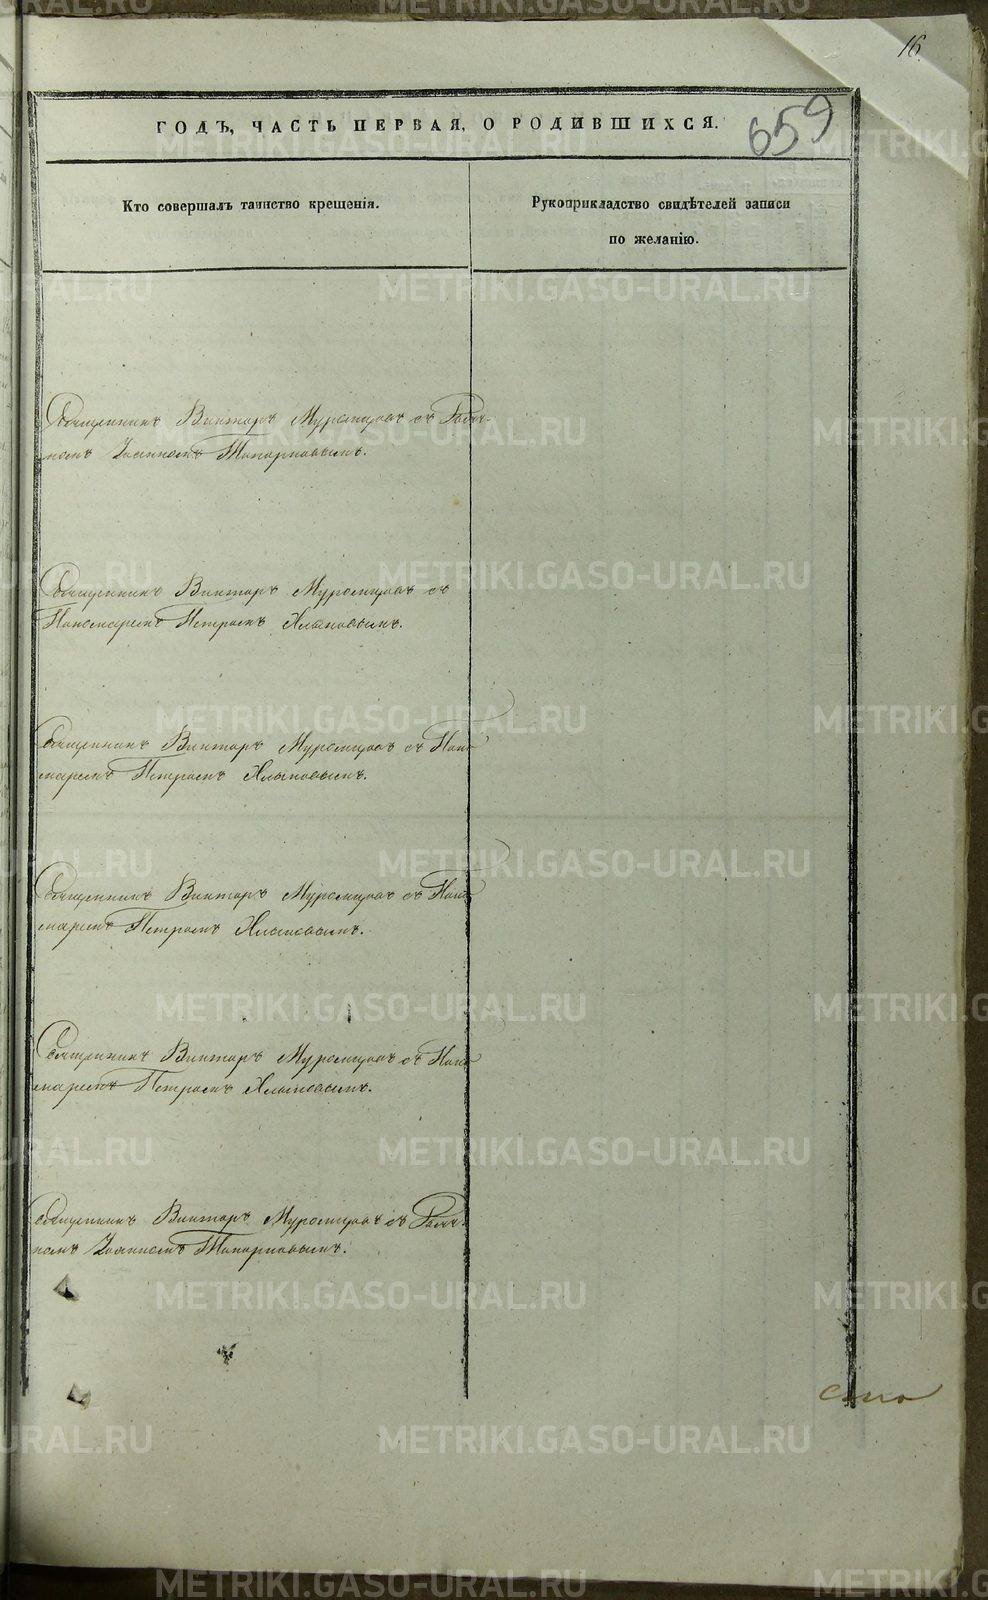 16.
ГОДЪ, ЧАСТЬ ПЕРВАЯ, О РОДИВШИХСЯ.
659
Кто совершалъ таинство крещенія.
Рукоприкладство свидѣтелей записи
по желанію.
Священникъ Викторъ Муромцовъ съ
Іоанномъ Топорковымъ.
Священникъ Викторъ Муромцовъ съ
Пономаремъ Петромъ Хлыновымъ.
Священникъ Викторъ Муромцовъ съ Поно-
маремъ Петромъ Хлыновымъ.
Священникъ Викторъ Муромцовъ съ Поно-
маремъ Петромъ Хлыновымъ.
Священникъ Викторъ Муромцовъ съ Поно-
маремъ Петромъ Хлыновымъ.
Священникъ Викторъ Муромцовъ съ
Іоанномъ Топорковымъ.
METRIKI.GASO-URAL.RU